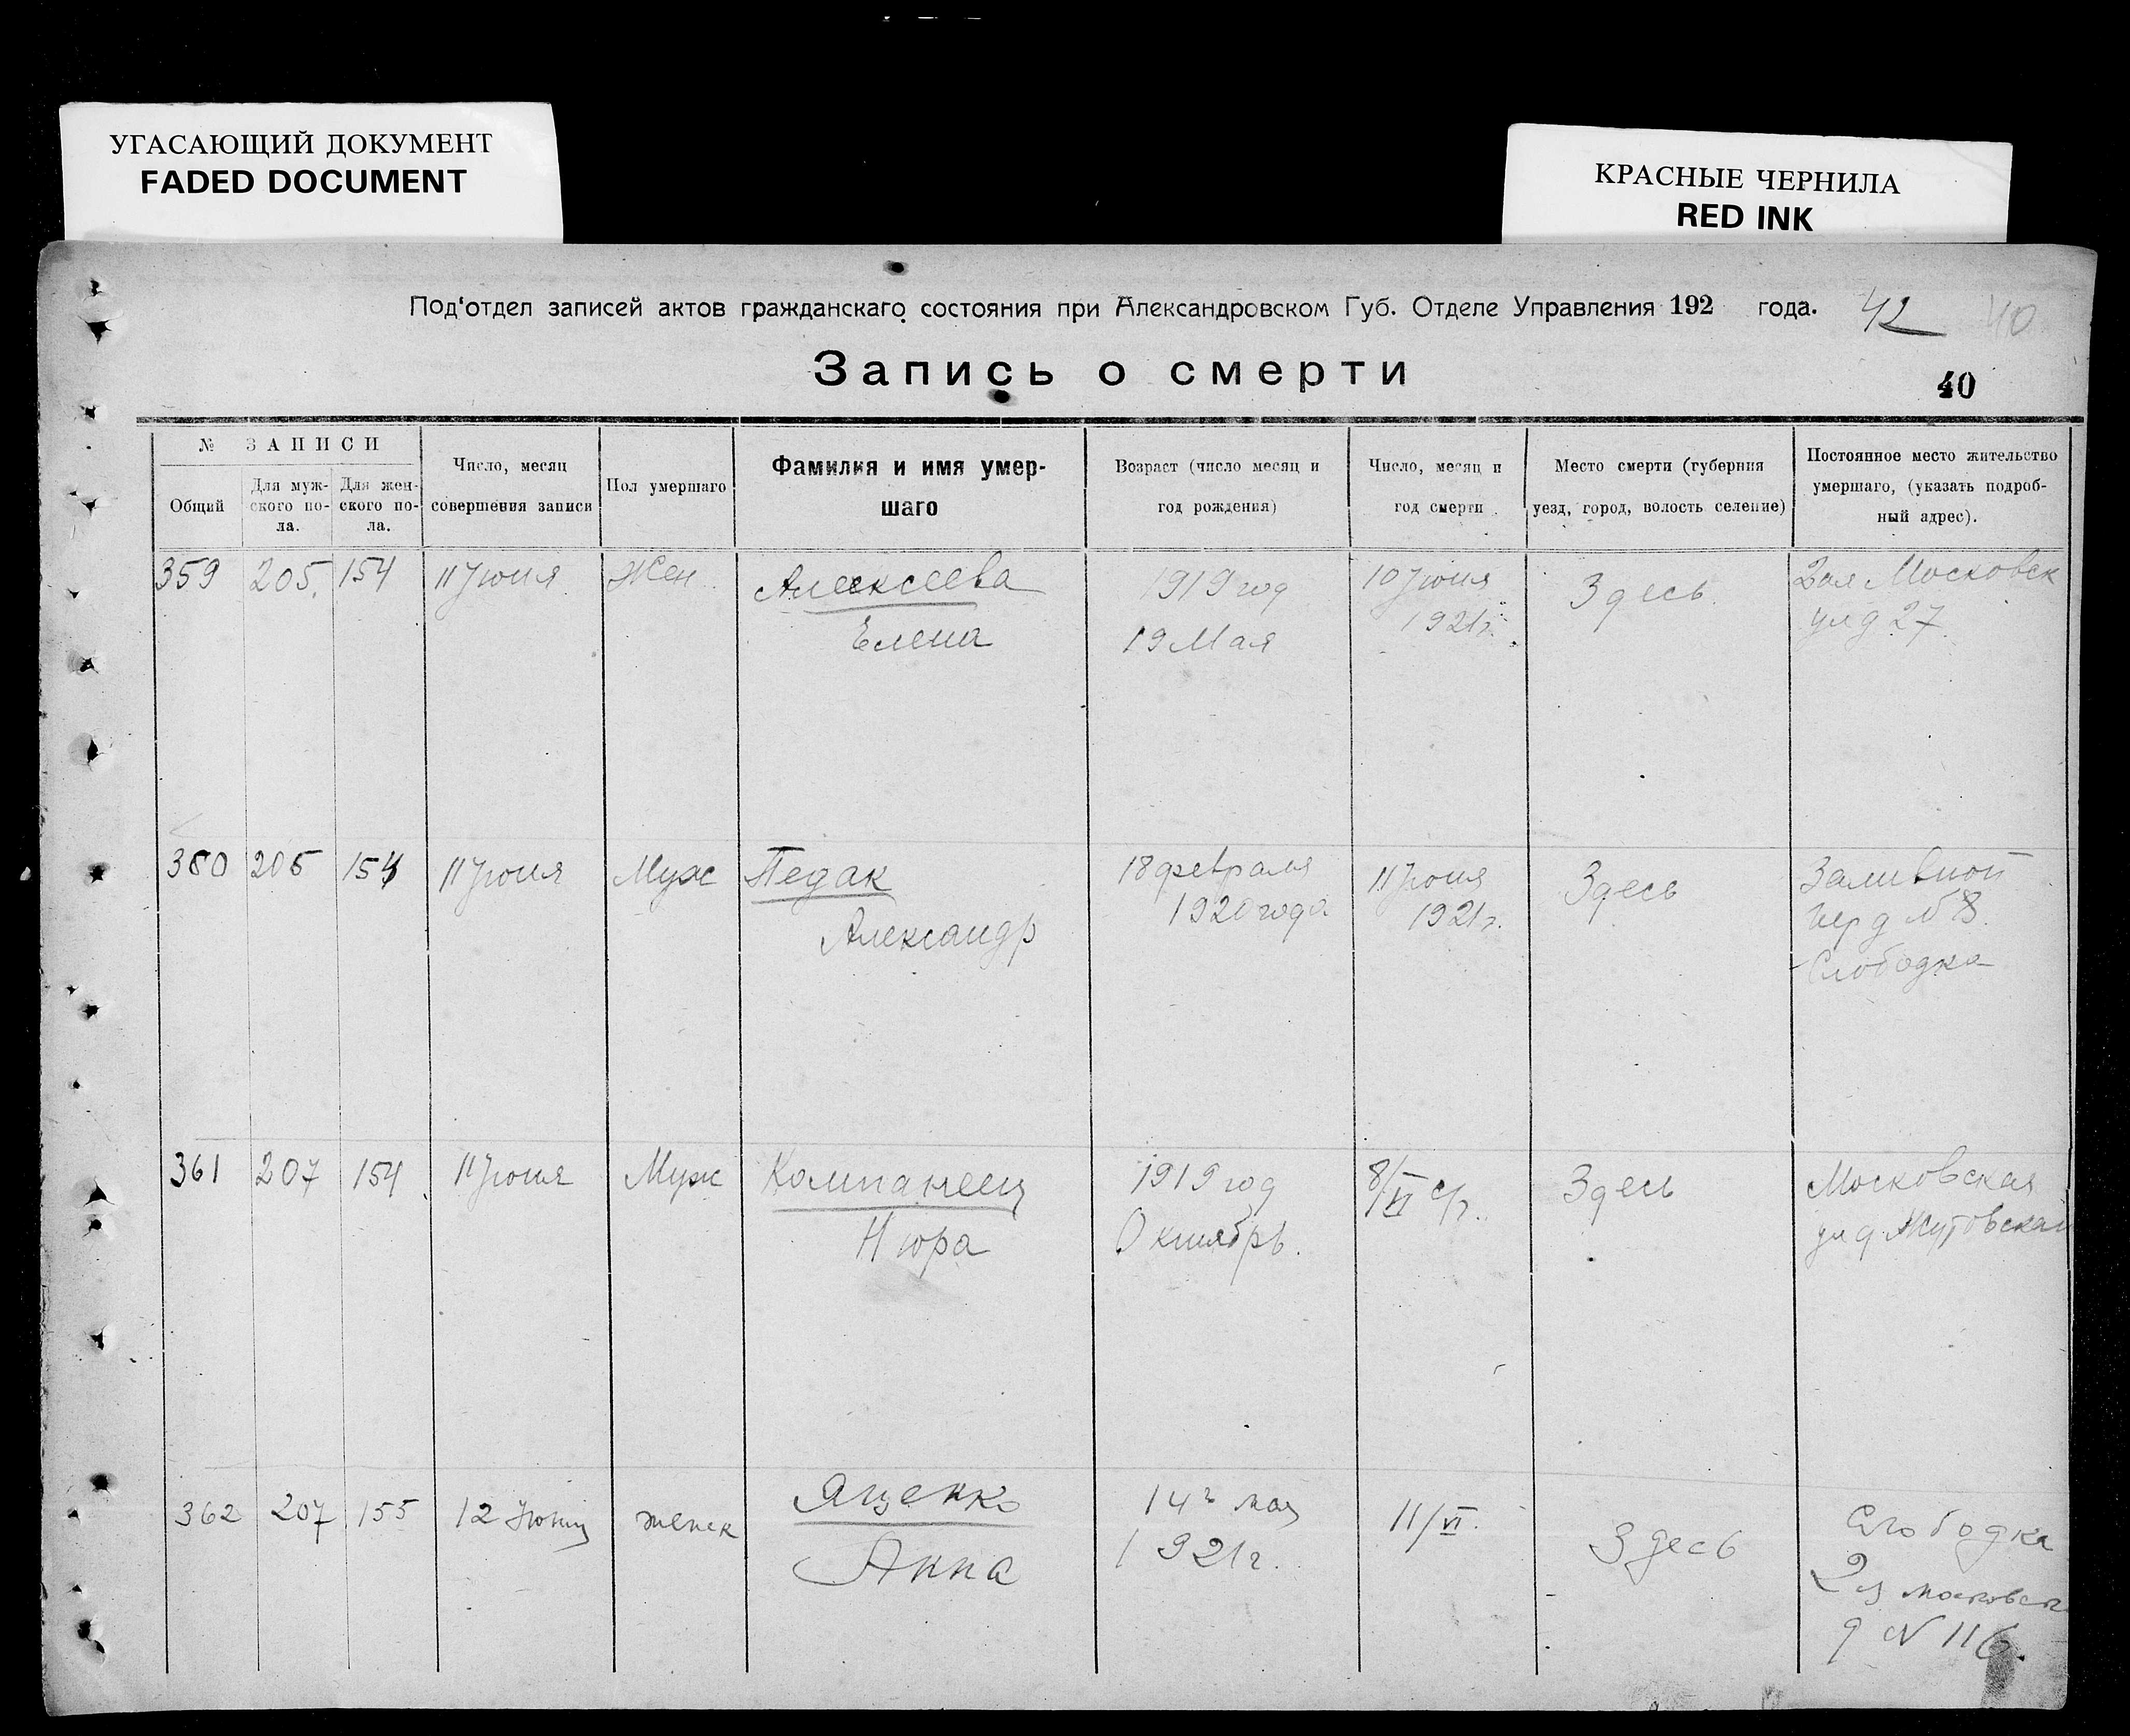 УГАСАЮЩИЙ ДОКУМЕНТ
FADED DOCUMENT
КРАСНЫЕ ЧЕРНИЛА
RED INK
Под‘отдел записей актов гражданскаго состояния при Александровском Губ. Отделе Управления 192 года. 42 40
Запись о смерти
40
№ ЗАПИСИ
Общий
Для муж-
ского по-
ла.
Для жен-
ского по-
ла.
Число, месяц
совершения записи
Пол умершаго
Фамилия и имя умер-
шаго
Возраст (число месяц и
год рождения)
Число, месяц и
год смерти
Место смерти (губерния
уезд, город, волость селение)
Постоянное место жительство
умершаго, (указать подроб-
ный адрес).
359 205. 154 11 Июня Жен Алексеева 1919 год 10 Июня Здесь. 2ая Московск
Елена 19 Мая 1921г. ул д 27
360 206 154 11 Июня Муж Педак 18 февраля 11 Июня Здесь Заливной
Александр 1920 года 1921г. пер д № 8.
Слободка
361 207 154 11 Июня Муж Компанеец 1919 год 8/VI с/г. Здесь Московская
Нюра Октябрь. ул д
362 207 155 12 Июня женск Яценко 14го мая 11/VI. Здесь Слободка
Анна 1921г. 2я московск
д № 116.